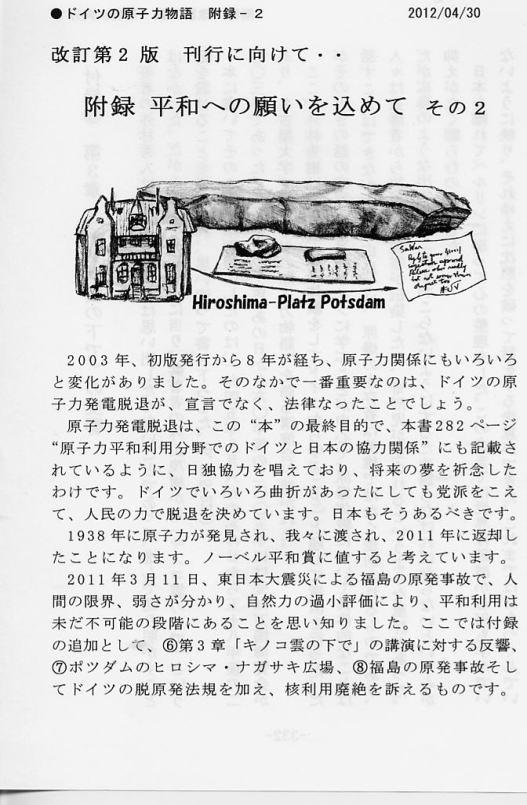 ●ドイツの原子力物語 附録-2 2012/04/30
改訂第2版 刊行に向けて・・
附録 平和への願いを込めて その2
Hiroshima-Platz Potsdam
2003年、初版発行から8年が経ち、原子力関係にもいろいろ
と変化がありました。そのなかで一番重要なのは、ドイツの原
子力発電脱退が、宣言でなく、法律なったことでしょう。
原子力発電脱退は、この“本”の最終目的で、本書282ページ
“原子力平和利用分野でのドイツと日本の協力関係”にも記載さ
れているように、日独協力を唱えており、将来の夢を祈念した
わけです。ドイツでいろいろ曲折があったにしても党派をこえ
て、人民の力で脱退を決めています。日本もそうあるべきです。
1938年に原子力が発見され、我々に渡され、2011年に返却し
たことになります。ノーベル平和賞に値すると考えています。
2011年3月11日、東日本大震災による福島の原発事故で、人
間の限界、弱さが分かり、自然力の過小評価により、平和利用は
未だ不可能の段階にあることを思い知りました。ここでは付録
の追加として、⑥第3章「キノコ雲の下で」の講演に対する反響、
⑦ポツダムのヒロシマ・ナガサキ広場、⑧福島の原発事故そし
てドイツの脱原発法規を加え、核利用廃絶を訴えるものです。